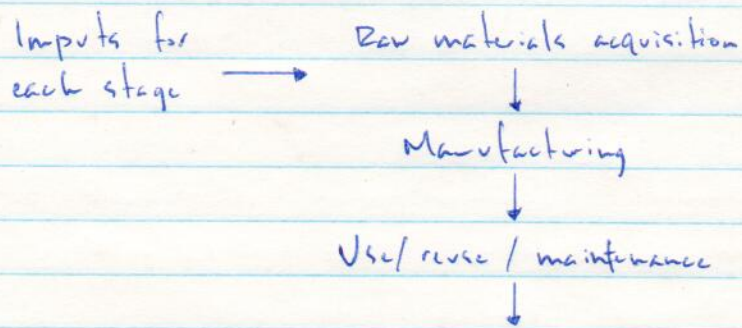 Imputs for
each stage
Raw materials acquisition
Manufacturing
Use/ reuse / maintenance